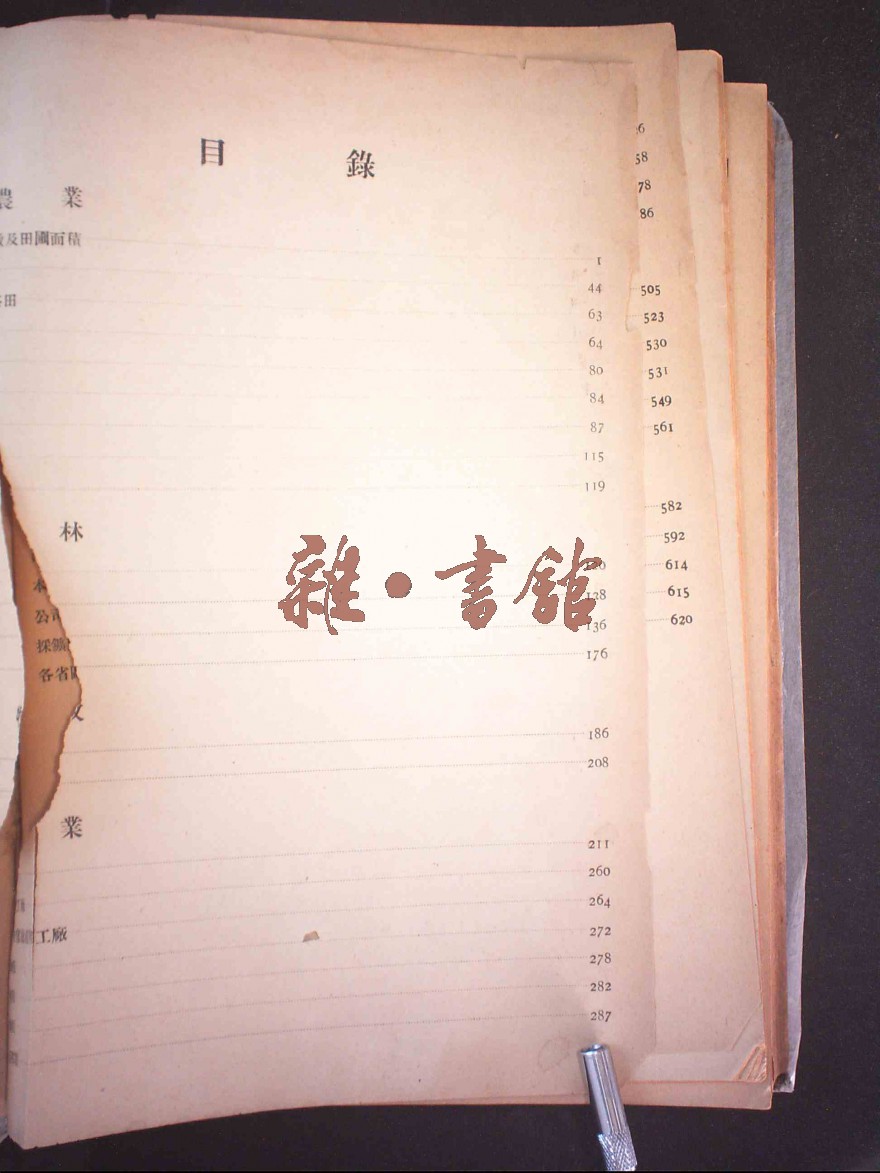 目 錄
業
及田園面積
1
44
田
63
64
80
84
87
115
119
林
128
公
136
採鑛
176
各省
186
208
業
211
260
264
工廠
272
278
282
287
58
78
86
505
523
530
531
549
561
582
592
614
615
620
雜·書館